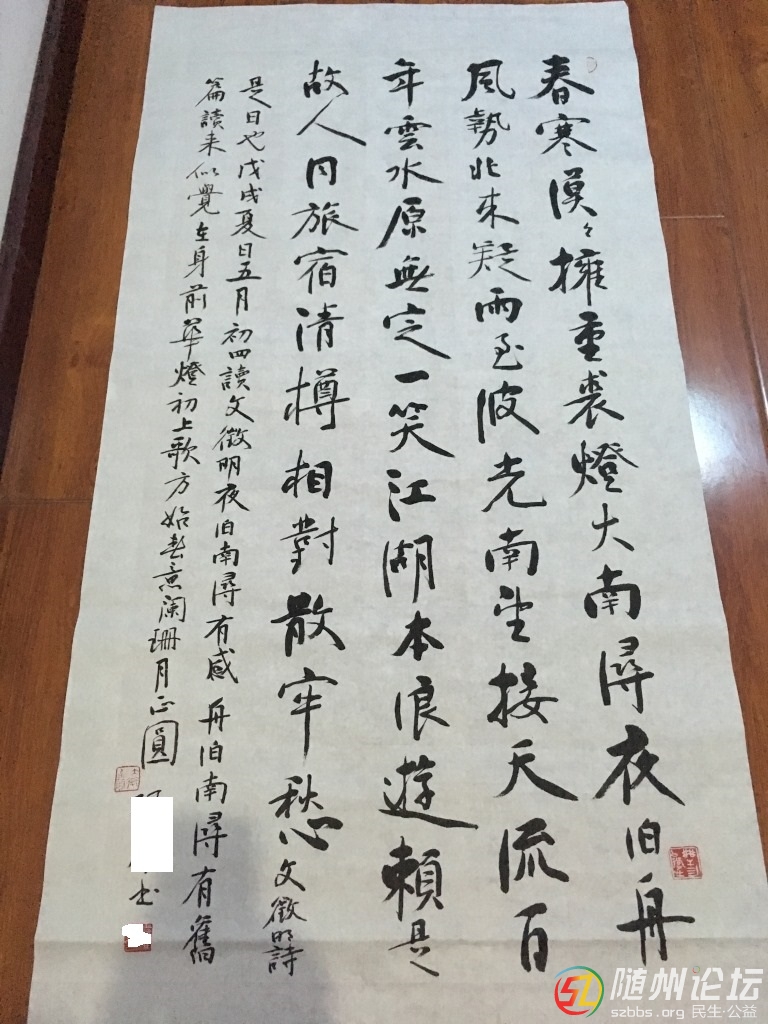 春寒漠々擁重裘燈火南潯夜泊舟
風勢北來疑雨至波光南望接天流百
年雲水原無定一笑江湖本浪遊賴是
故人同旅宿清樽相對散牢愁文徵明詩
是日也戊戌夏日五月初四讀文徵明夜泊南潯有感舟泊南潯有舊
篇讀来似覺在身前華燈初上歌方始春意闌珊月正圓
書
随州论坛
szbbs.org 民生·公益